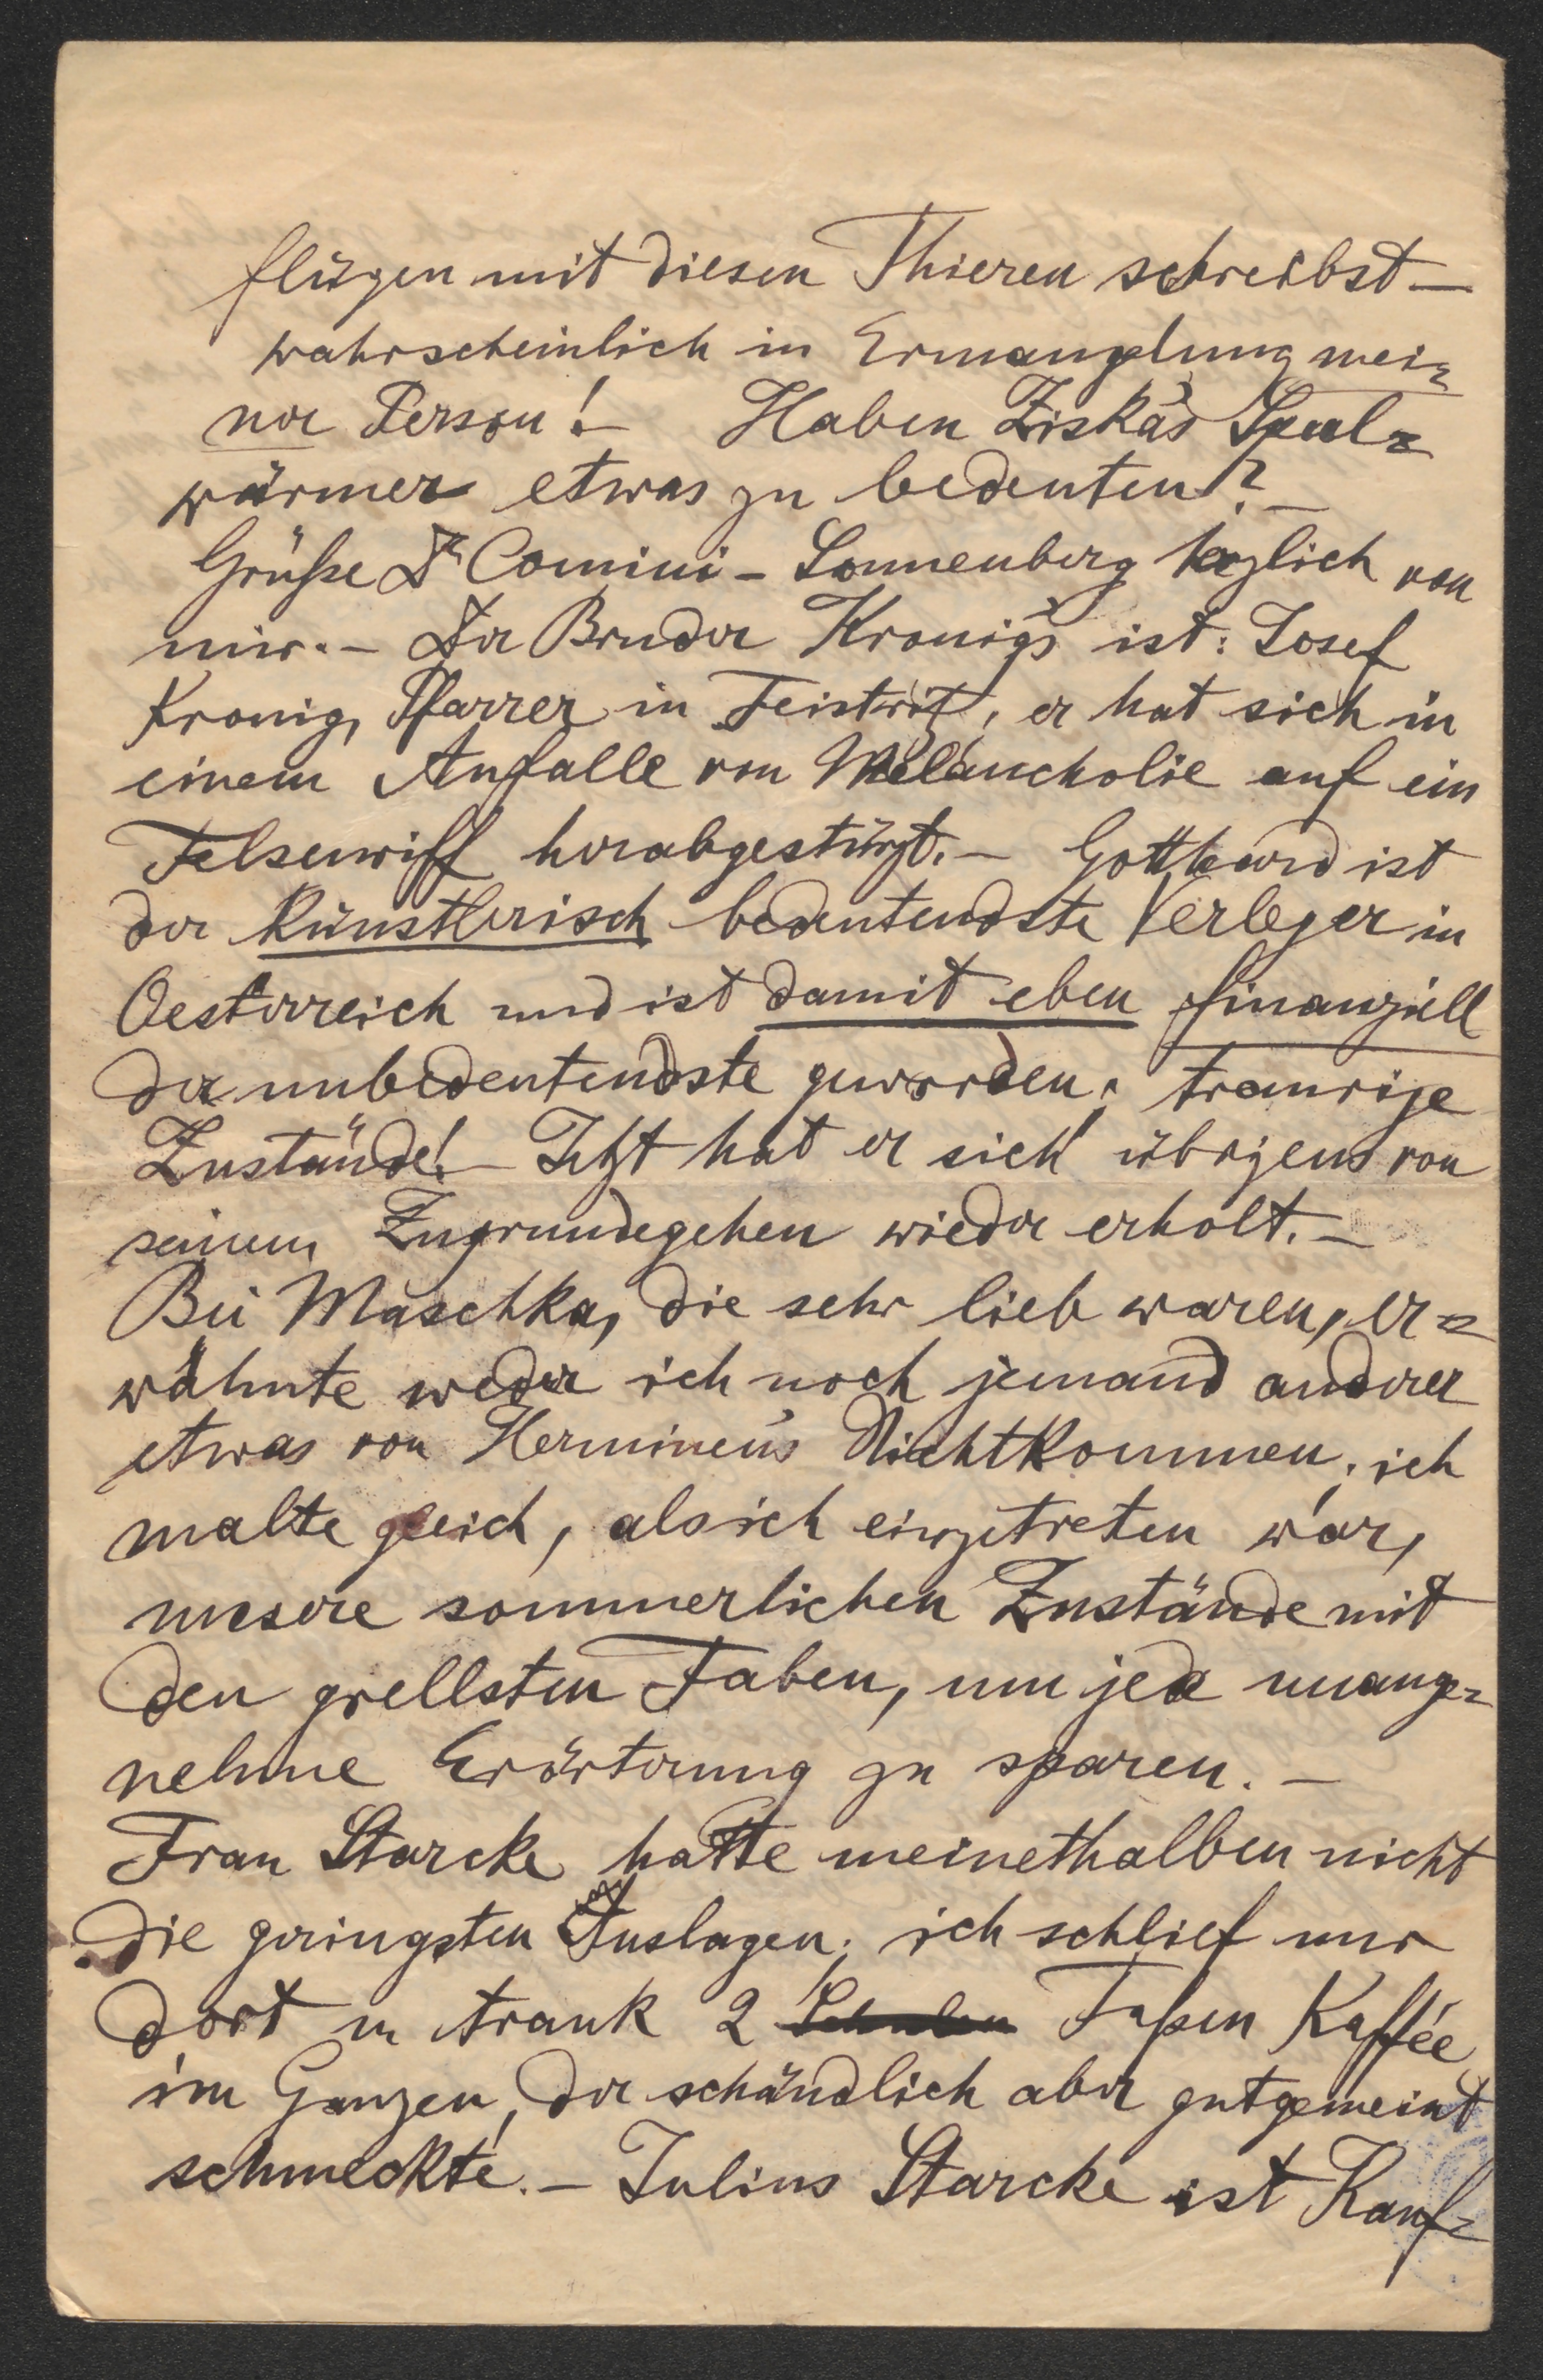 flügen mit diesen Thieren schreibst —
wahrscheinlich in Ermanglung mei=
ner Person! — Haben Ziska's Spul=
würmer etwas zu bedeuten? —
Grüße Dr Comini-Sonnenberg herzlich von
mir. — Der Bruder Kronig's ist: Josef
Kronig, Pfarrer in Feistritz, er hat sich in
einem Anfalle von Melancholie auf ein
Felsenriff herabgestürzt. — Gotthard ist
der künstlerisch bedeutendste Verleger in
Oesterreich und ist damit eben finanziell
der unbedeutendste geworden; traurige
Zustände! — Jetzt hat er sich übrigens von
seinem Zugrundegehen wieder erholt. —
Bei Maschka, die sehr lieb waren, er=
wähnte weder ich noch jemand anderer
etwas von Herminen's Nichtkommen; ich
malte gleich, als ich eingetreten war,
unsere sommerlichen Zustände mit
den grellsten Faben, um jede unange=
nehme Erörterung zu sparen. —
Frau Starcke hatte meinethalben nicht
die geringsten Auslagen; ich schlief nur
dort u trank 2 Taßen Kaffée
im Ganzen, der schändlich aber gutgemeint
schmeckte. — Julius Starcke ist Kauf=